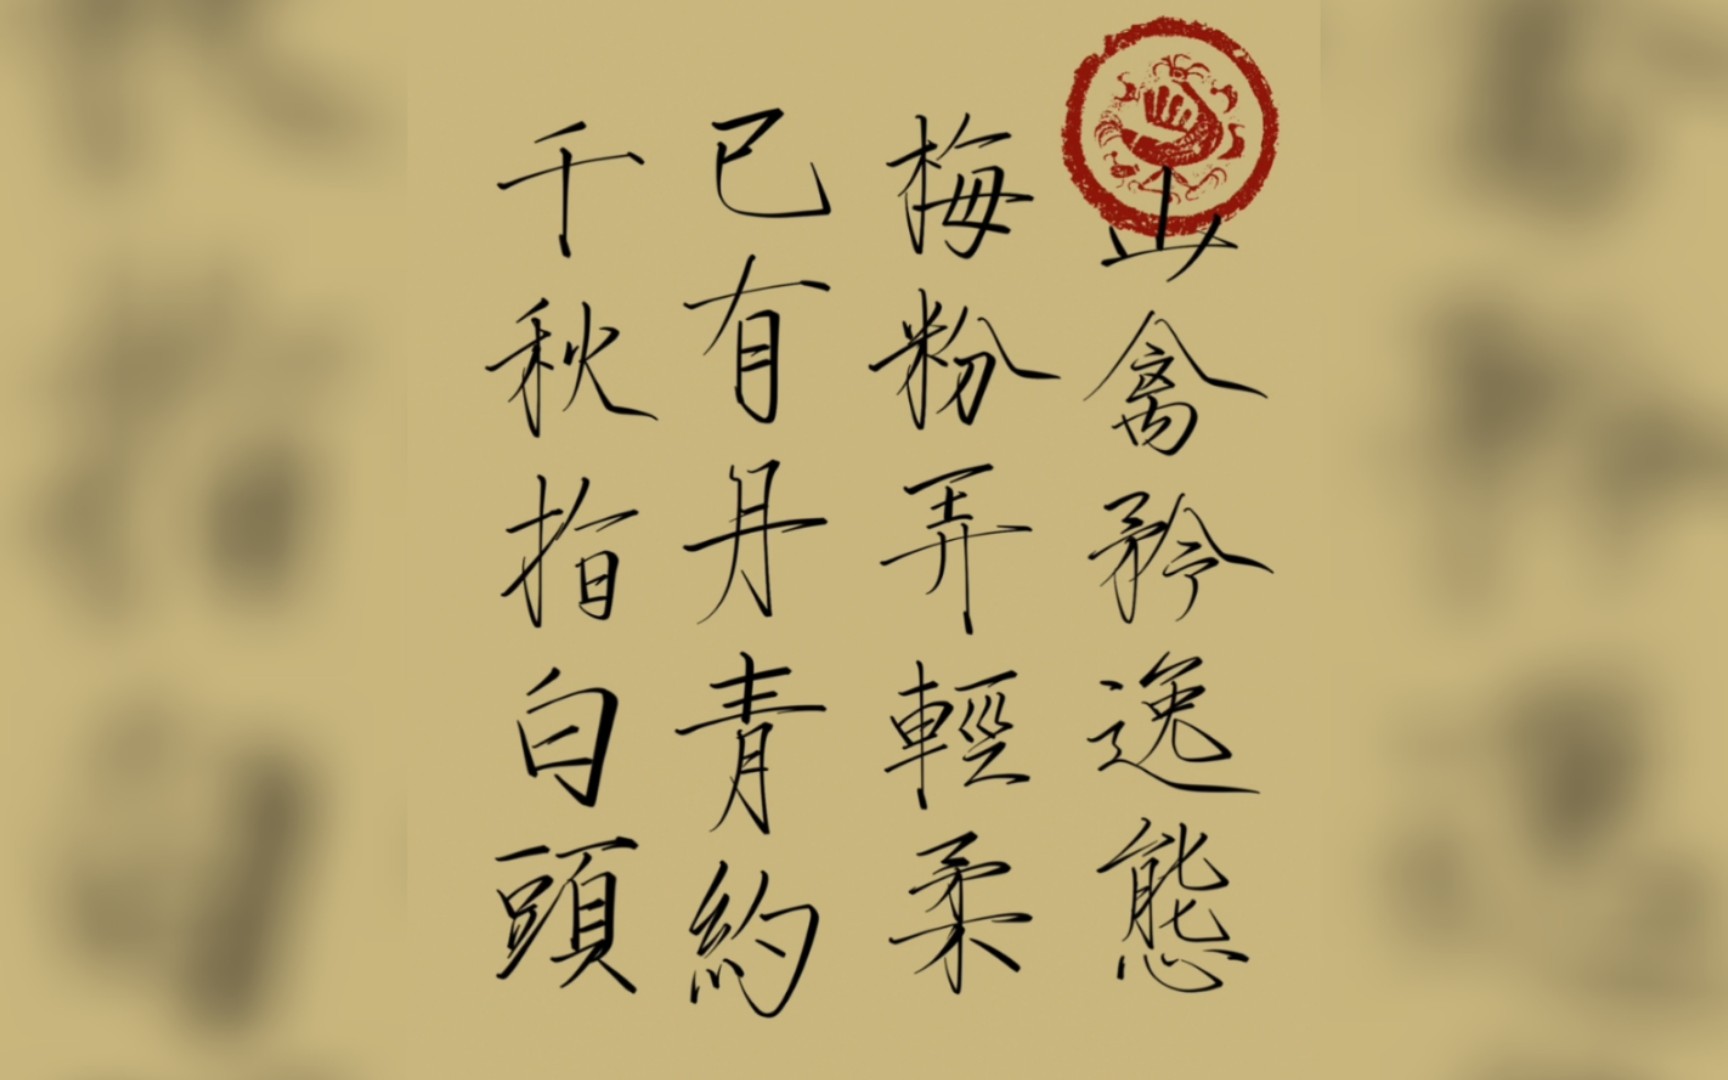 山禽矜逸態
梅粉弄輕柔
已有丹青約
千秋指白頭